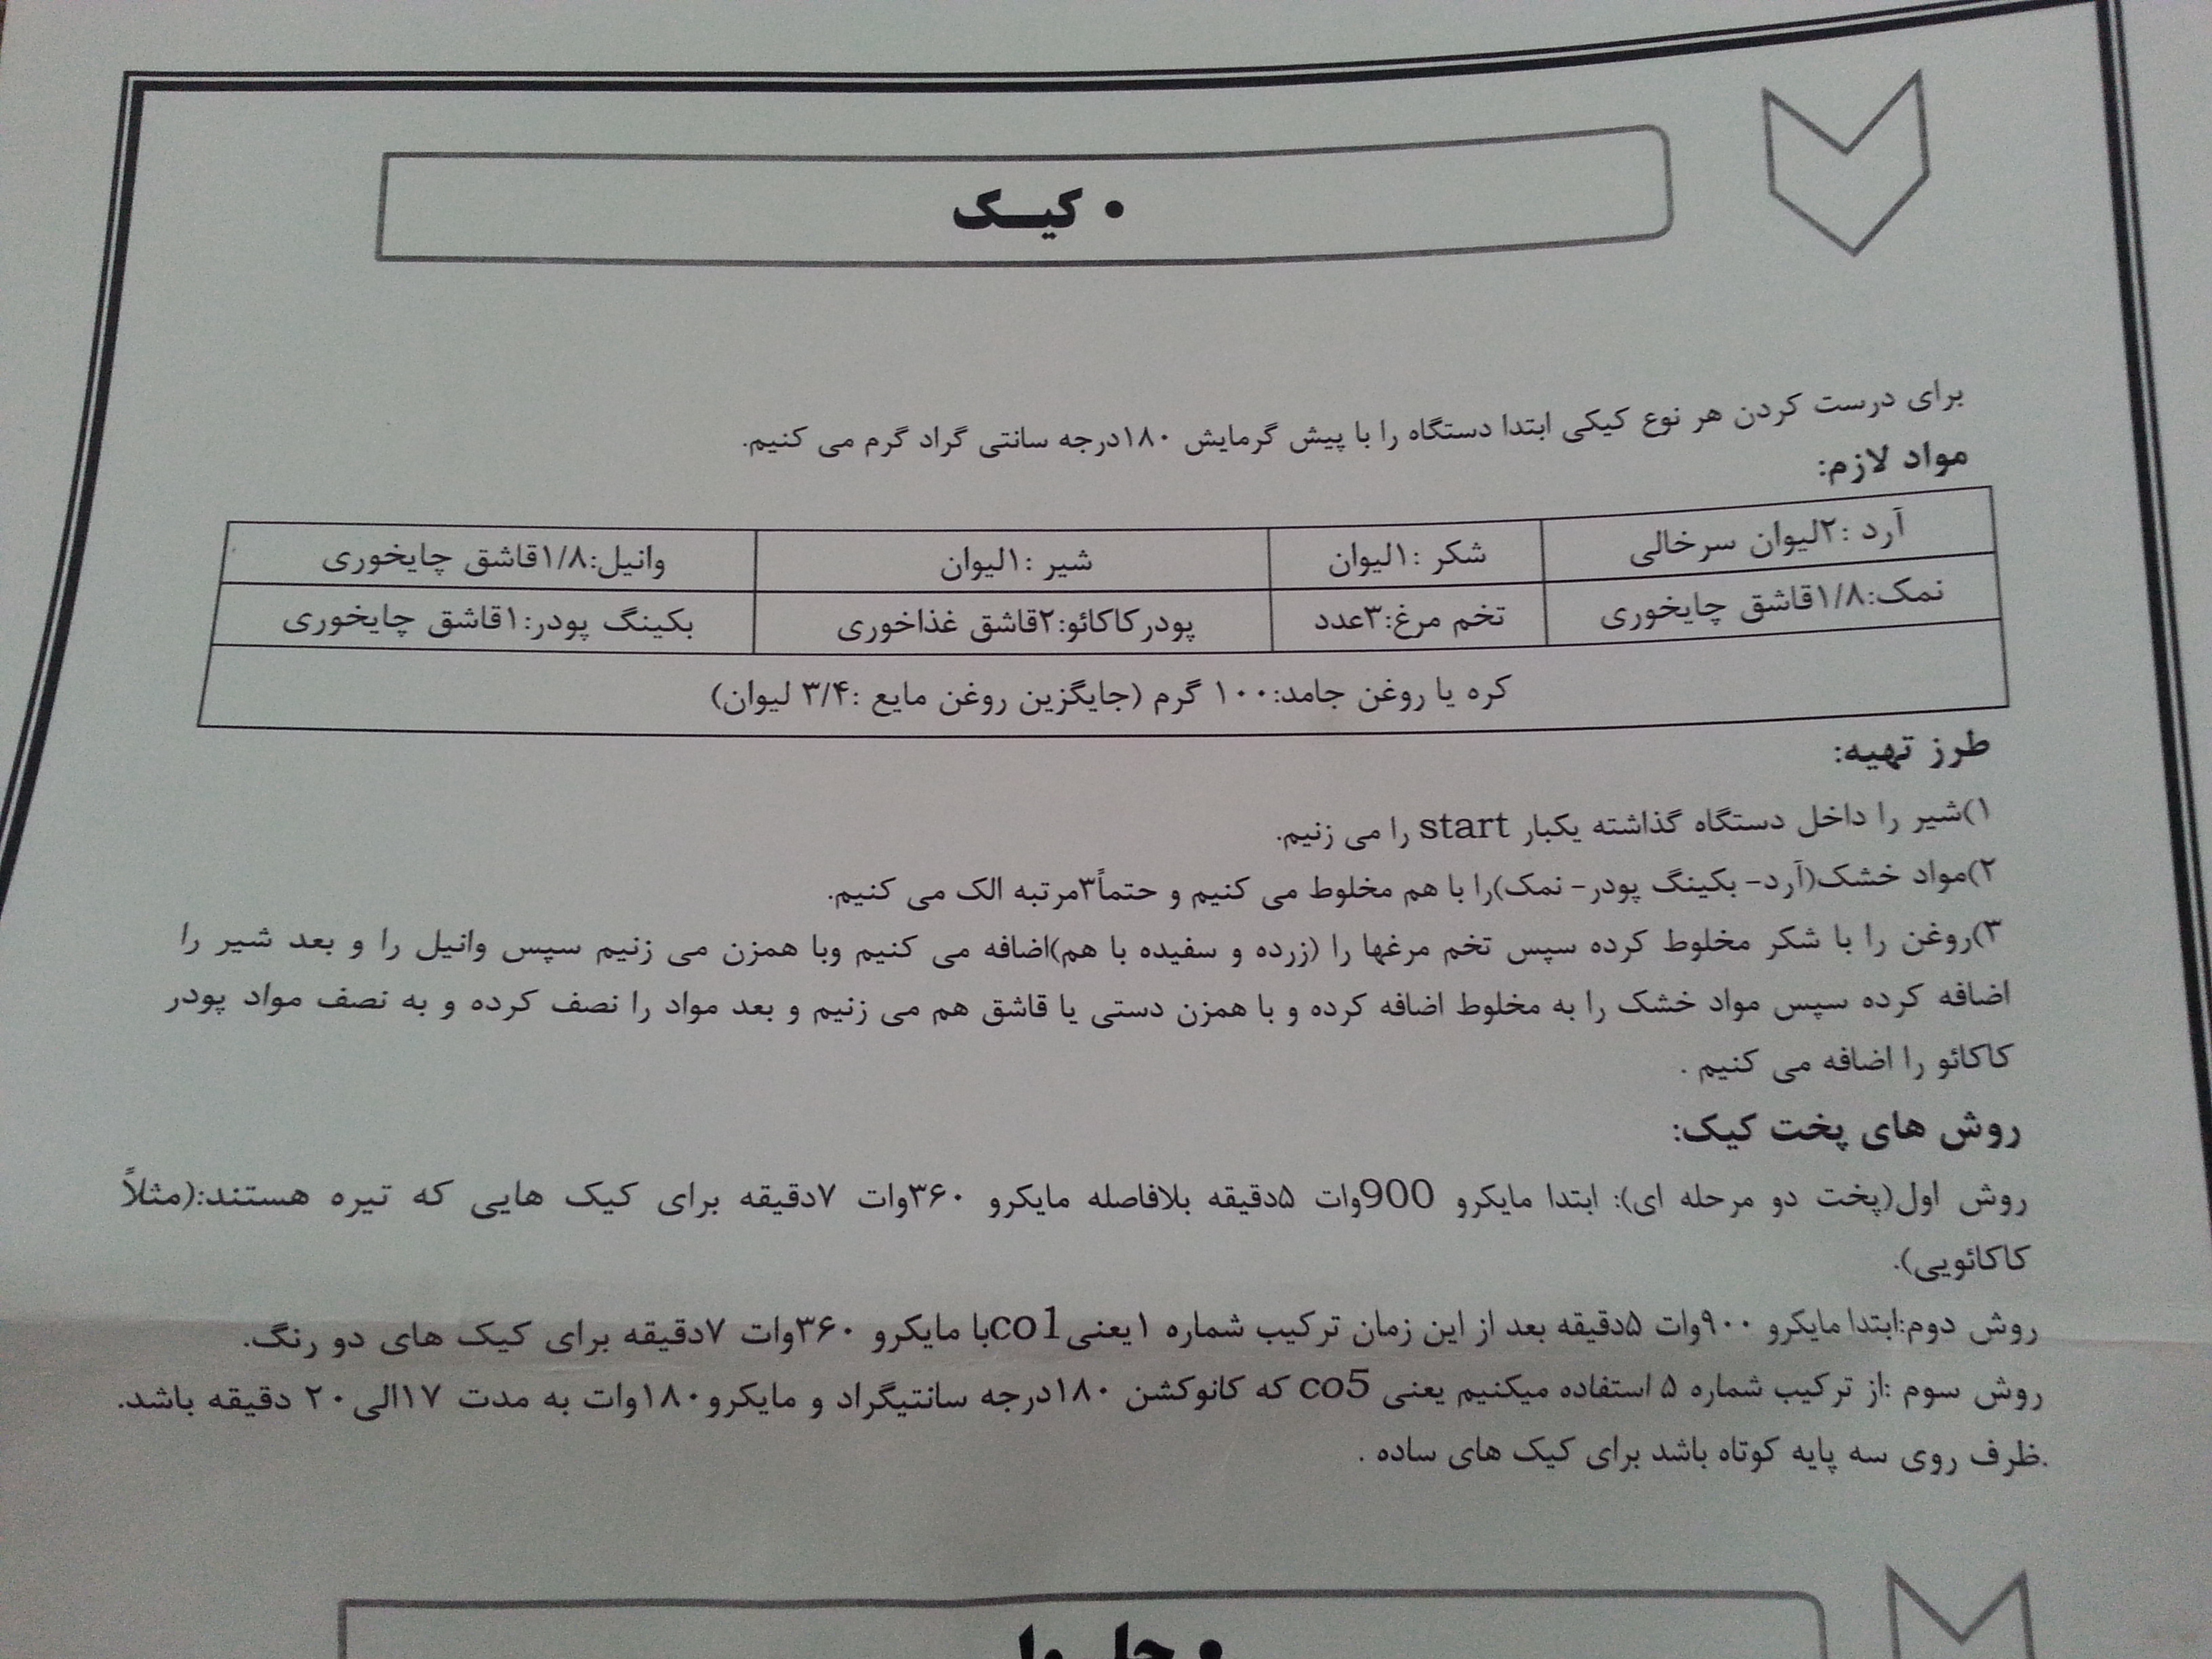 • کیـــک
برای درست کردن هر نوع کیکی ابتدا دستگاه را با پیش گرمایش ۱۸۰درجه سانتی گراد گرم می کنیم.
مواد لازم:
آرد :۲لیوان سرخالی شکر :۱لیوان شیر :۱لیوان وانیل:۱/۸قاشق چایخوری
نمک:۱/۸قاشق چایخوری تخم مرغ:۳عدد پودرکاکائو:۲قاشق غذاخوری بکینگ پودر:۱قاشق چایخوری
کره یا روغن جامد:۱۰۰ گرم (جایگزین روغن مایع :۳/۴ لیوان)
طرز تهیه:
۱)شیر را داخل دستگاه گذاشته یکبار start را می زنیم.
۲)مواد خشک(آرد- بکینگ پودر- نمک)را با هم مخلوط می کنیم و حتماً۳مرتبه الک می کنیم.
۳)روغن را با شکر مخلوط کرده سپس تخم مرغها را (زرده و سفیده با هم)اضافه می کنیم وبا همزن می زنیم سپس وانیل را و بعد شیر را
اضافه کرده سپس مواد خشک را به مخلوط اضافه کرده و با همزن دستی یا قاشق هم می زنیم و بعد مواد را نصف کرده و به نصف مواد پودر
کاکائو را اضافه می کنیم .
روش های پخت کیک:
روش اول(پخت دو مرحله ای): ابتدا مایکرو 900وات ۵دقیقه بلافاصله مایکرو ۳۶۰وات ۷دقیقه برای کیک هایی که تیره هستند:(مثلاً
کاکائویی).
روش دوم:ابتدا مایکرو ۹۰۰وات ۵دقیقه بعد از این زمان ترکیب شماره ۱یعنیco1با مایکرو ۳۶۰وات ۷دقیقه برای کیک های دو رنگ.
روش سوم :از ترکیب شماره ۵ استفاده میکنیم یعنی co5 که کانوکشن ۱۸۰درجه سانتیگراد و مایکرو۱۸۰وات به مدت ۱۷الی۲۰ دقیقه باشد.
.ظرف روی سه پایه کوتاه باشد برای کیک های ساده .